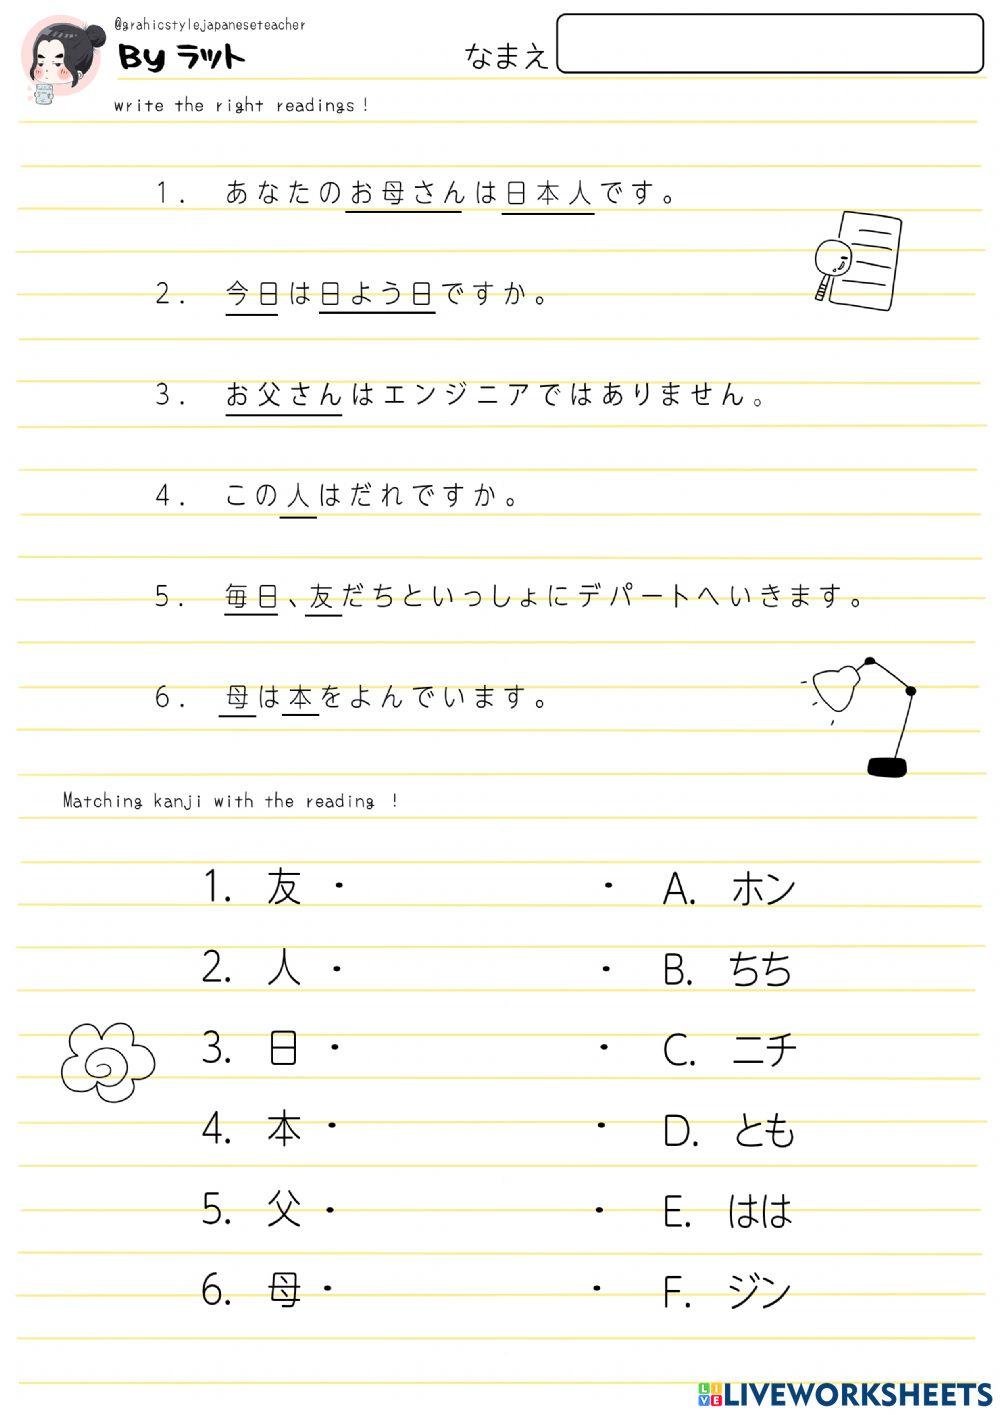 @grahicstylejapaneseteacher
By ラット
なまえ
write the right readings！
1. あなたのお母さんは日本人です。
2. 今日は日よう日ですか。
3. お父さんはエンジニアではありません。
4. この人はだれですか。
5. 毎日、友だちといっしょにデパートへいきます。
6. 母は本をよんでいます。
Matching kanji with the reading ！
1. 友 ・ ・ A. ホン
2. 人 ・ ・ B. ちち
3. 日 ・ ・ C. ニチ
4. 本 ・ ・ D. とも
5. 父 ・ ・ E. はは
6. 母 ・ ・ F. ジン
LIVE LIVEWORKSHEETS